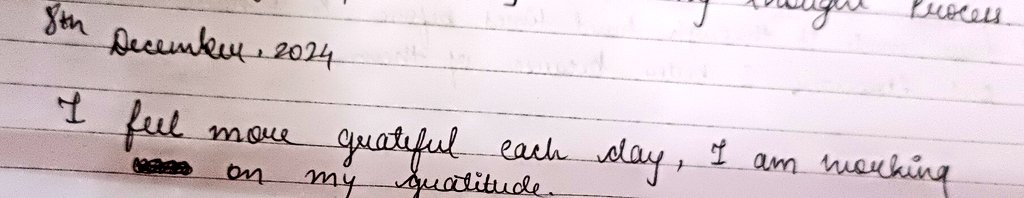 thought Process.
8th
December, 2024
I feel more grateful each day, I am working
on my gratitude.